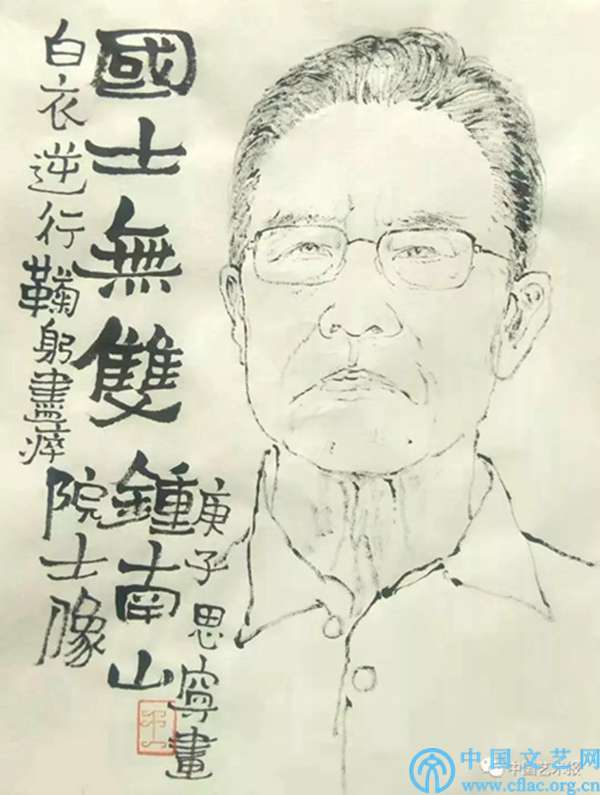 國士無雙鍾南山
白衣逆行鞠躬盡瘁
院士像
庚子思寧畫
中国艺术报
中国文艺网
www.cflac.org.cn